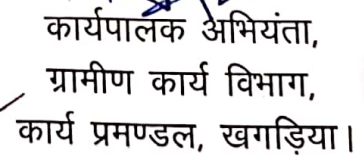 कार्यपालक अभियंता,
ग्रामीण कार्य विभाग,
कार्य प्रमण्डल, खगड़िया।